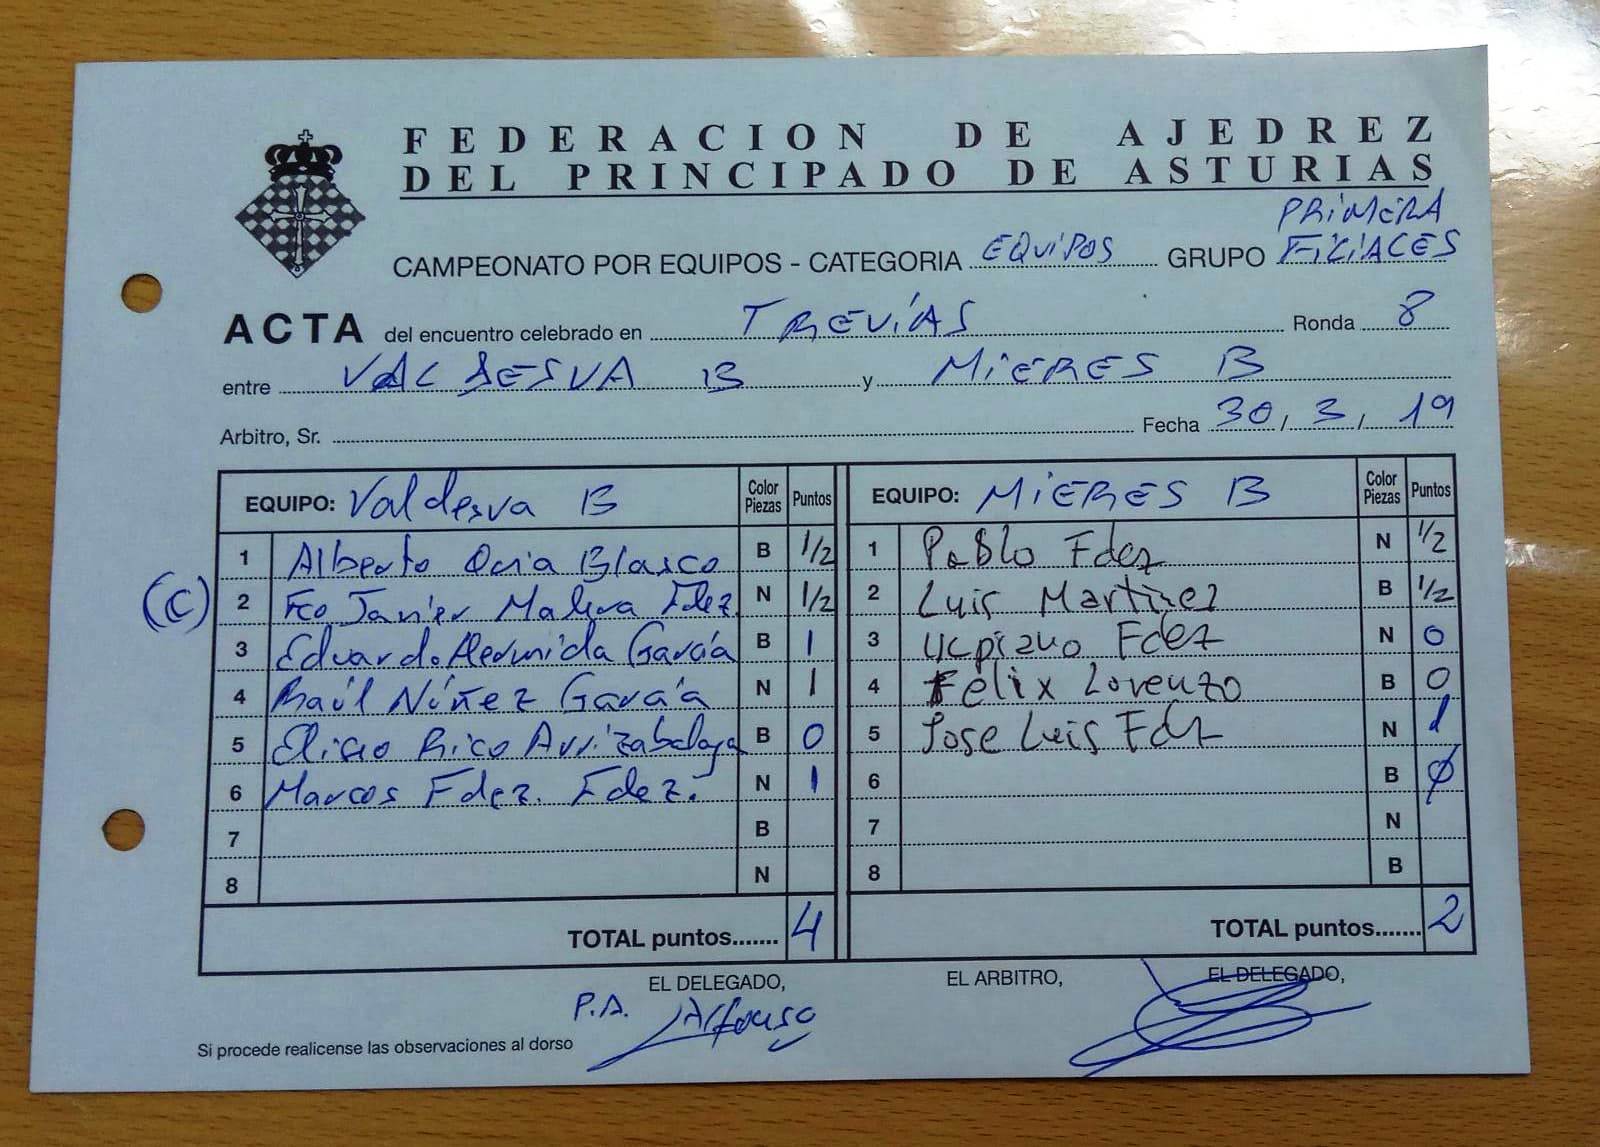 FEDERACION DE AJEDREZ
DEL PRINCIPADO DE ASTURIAS
PRIMERA
CAMPEONATO POR EQUIPOS - CATEGORIA EQUIPOS GRUPO FILIALES
ACTA del encuentro celebrado en TREVÍAS Ronda 8
entre VALDESVA B y MIERES B
Arbitro, Sr. Fecha 30/3/19
EQUIPO: Valdesva B Color Piezas Puntos EQUIPO: MIERES B Color Piezas Puntos
1 Alberto Oria Blasco B 1/2 1 Pablo Fdez N 1/2
(C) 2 Fco Javier Fdez. N 1/2 2 Luis Martinez B 1/2
3 Eduardo Hermida García B 1 3 Ulpiano Fdez N 0
4 Raúl Núñez García N 1 4 Félix Lorenzo B 0
5 Eliseo Rico Arrizabalaga B 0 5 Jose Luis Fdz N 1
6 Marcos Fdez. Fdez. N 1 6 B 0
7 B 7 N
8 N 8 B
TOTAL puntos....... 4 TOTAL puntos....... 2
EL DELEGADO, EL ARBITRO, EL DELEGADO,
P.A. Alfonso
Si procede realicense las observaciones al dorso